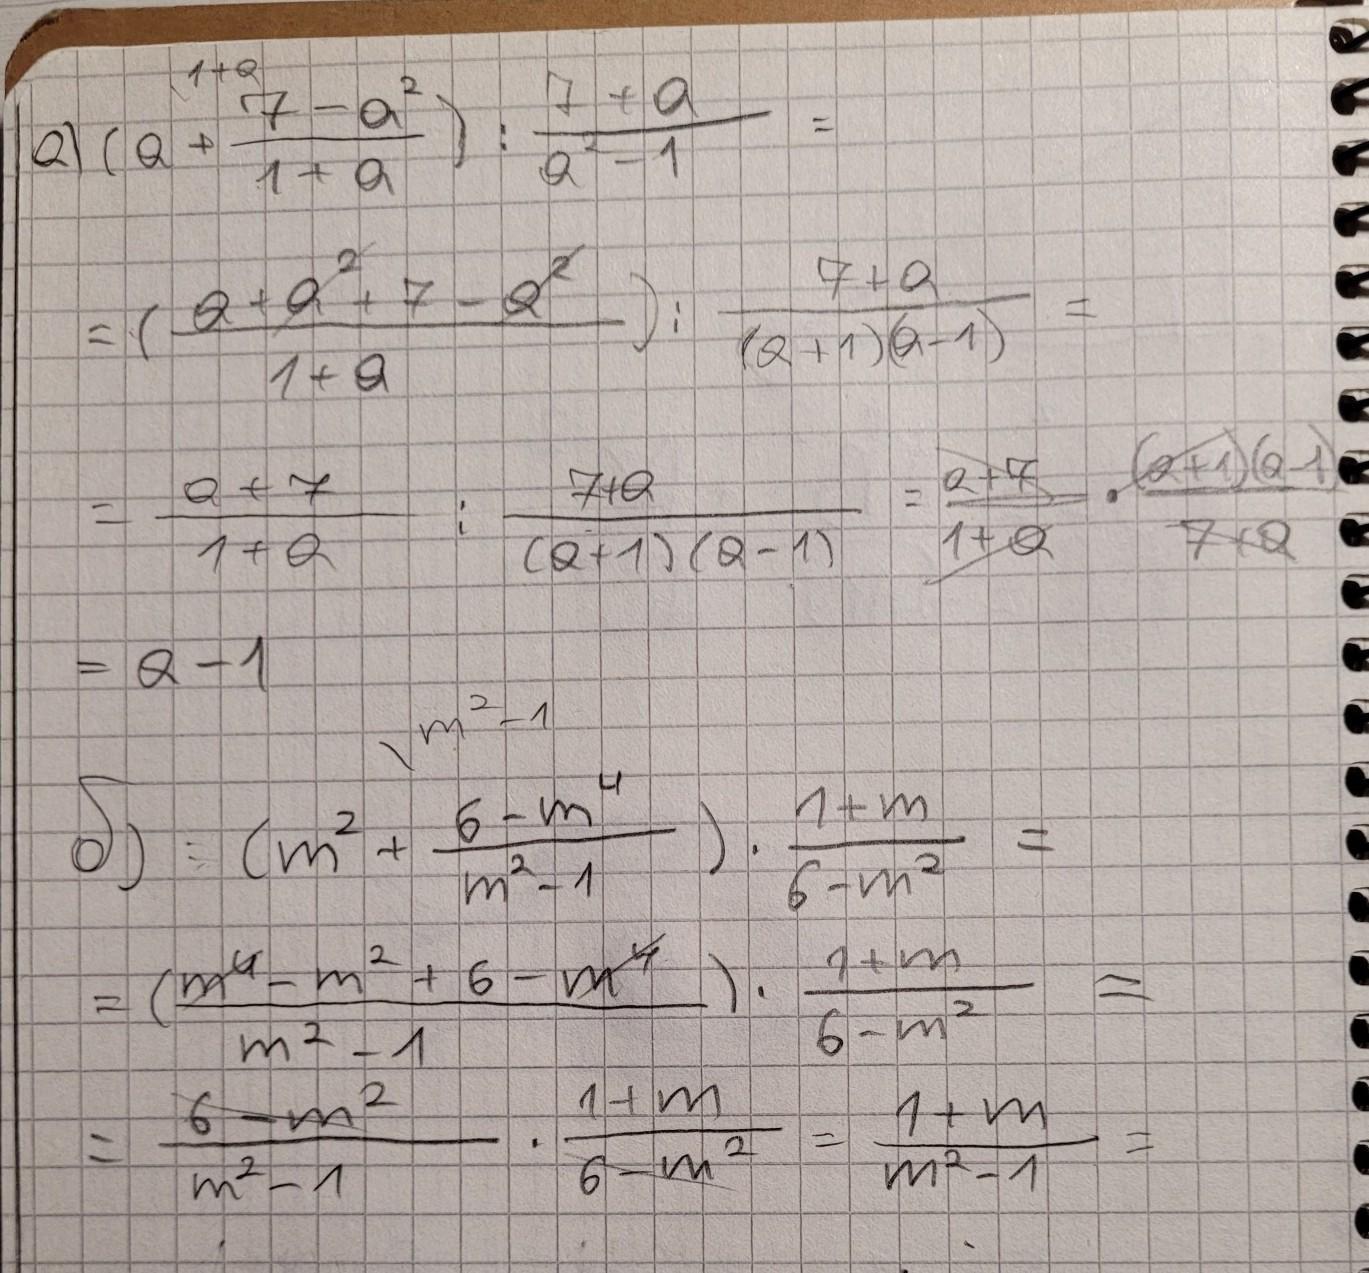 1+a
a) (a + \frac{7-a^2}{1+a}) : \frac{7+a}{a^2-1} =
= (\frac{a+a^2+7-a^2}{1+a}) : \frac{7+a}{(a+1)(a-1)} =
= \frac{a+7}{1+a} : \frac{7+a}{(a+1)(a-1)} = \frac{a+7}{1+a} \cdot \frac{(a+1)(a-1)}{7+a}
= a-1
m^2-1
б) = (m^2 + \frac{6-m^4}{m^2-1}) \cdot \frac{1+m}{6-m^2} =
= (\frac{m^4-m^2+6-m^4}{m^2-1}) \cdot \frac{1+m}{6-m^2} =
= \frac{6-m^2}{m^2-1} \cdot \frac{1+m}{6-m^2} = \frac{1+m}{m^2-1} =